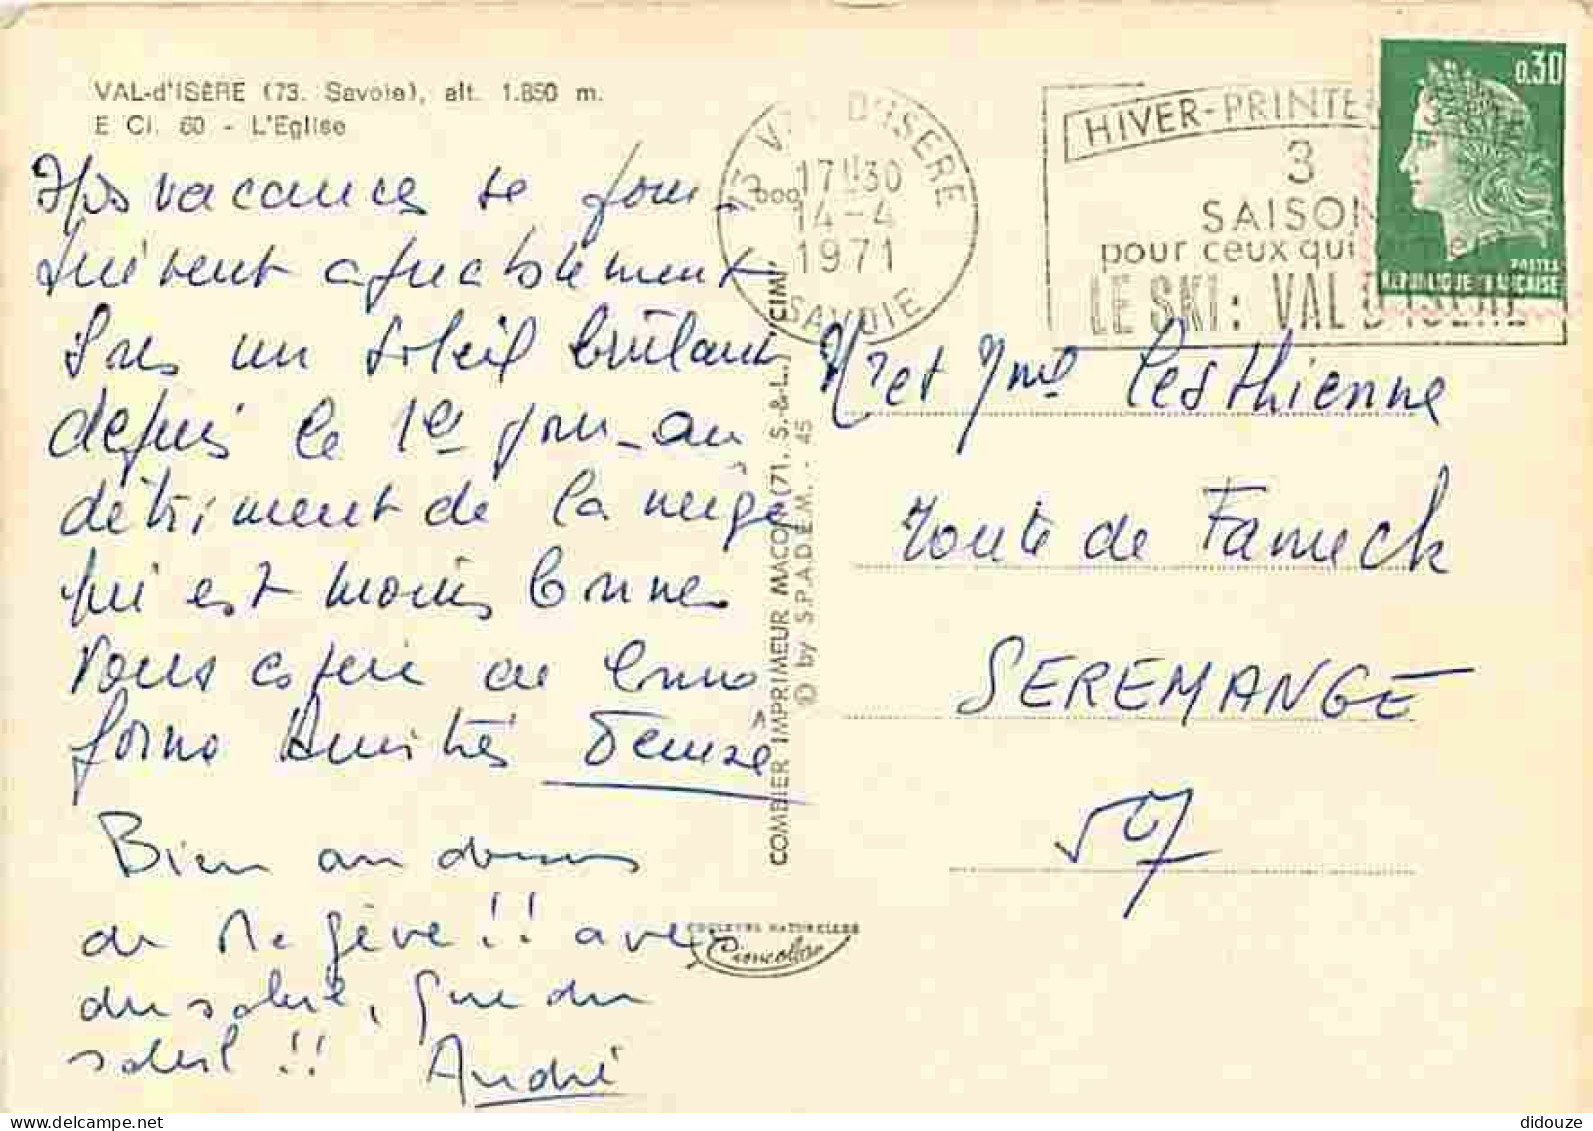 VAL-d'ISÈRE (73. Savoie), alt. 1.850 m.
E Ci. 60 - L'Eglise
vacances se pour-
suivent agréablement
sous un soleil brûlant
depuis le 1er jour - au
détriment de la neige
qui est moins bonne
Vous en bonne
forme Amitiés Denise
Bien au dessus
de Megève !! avec
du soleil, que du
soleil !! André
73 VAL D'ISERE
17H30
14-4
1971
SAVOIE
HIVER-PRINTE
3
SAISON
pour ceux qui aiment
LE SKI: VAL D'ISERE
0,30
POSTES
REPUBLIQUE FRANÇAISE
Mr et Mme Cesthienne
Route de Fameck
SEREMANGE
57
COMBIER IMPRIMEUR MACON (71. S.-&-L.) "CIM"
© by S.P.A.D.E.M. - 45
COULEURS NATURELLES
Cimcolor
didouze